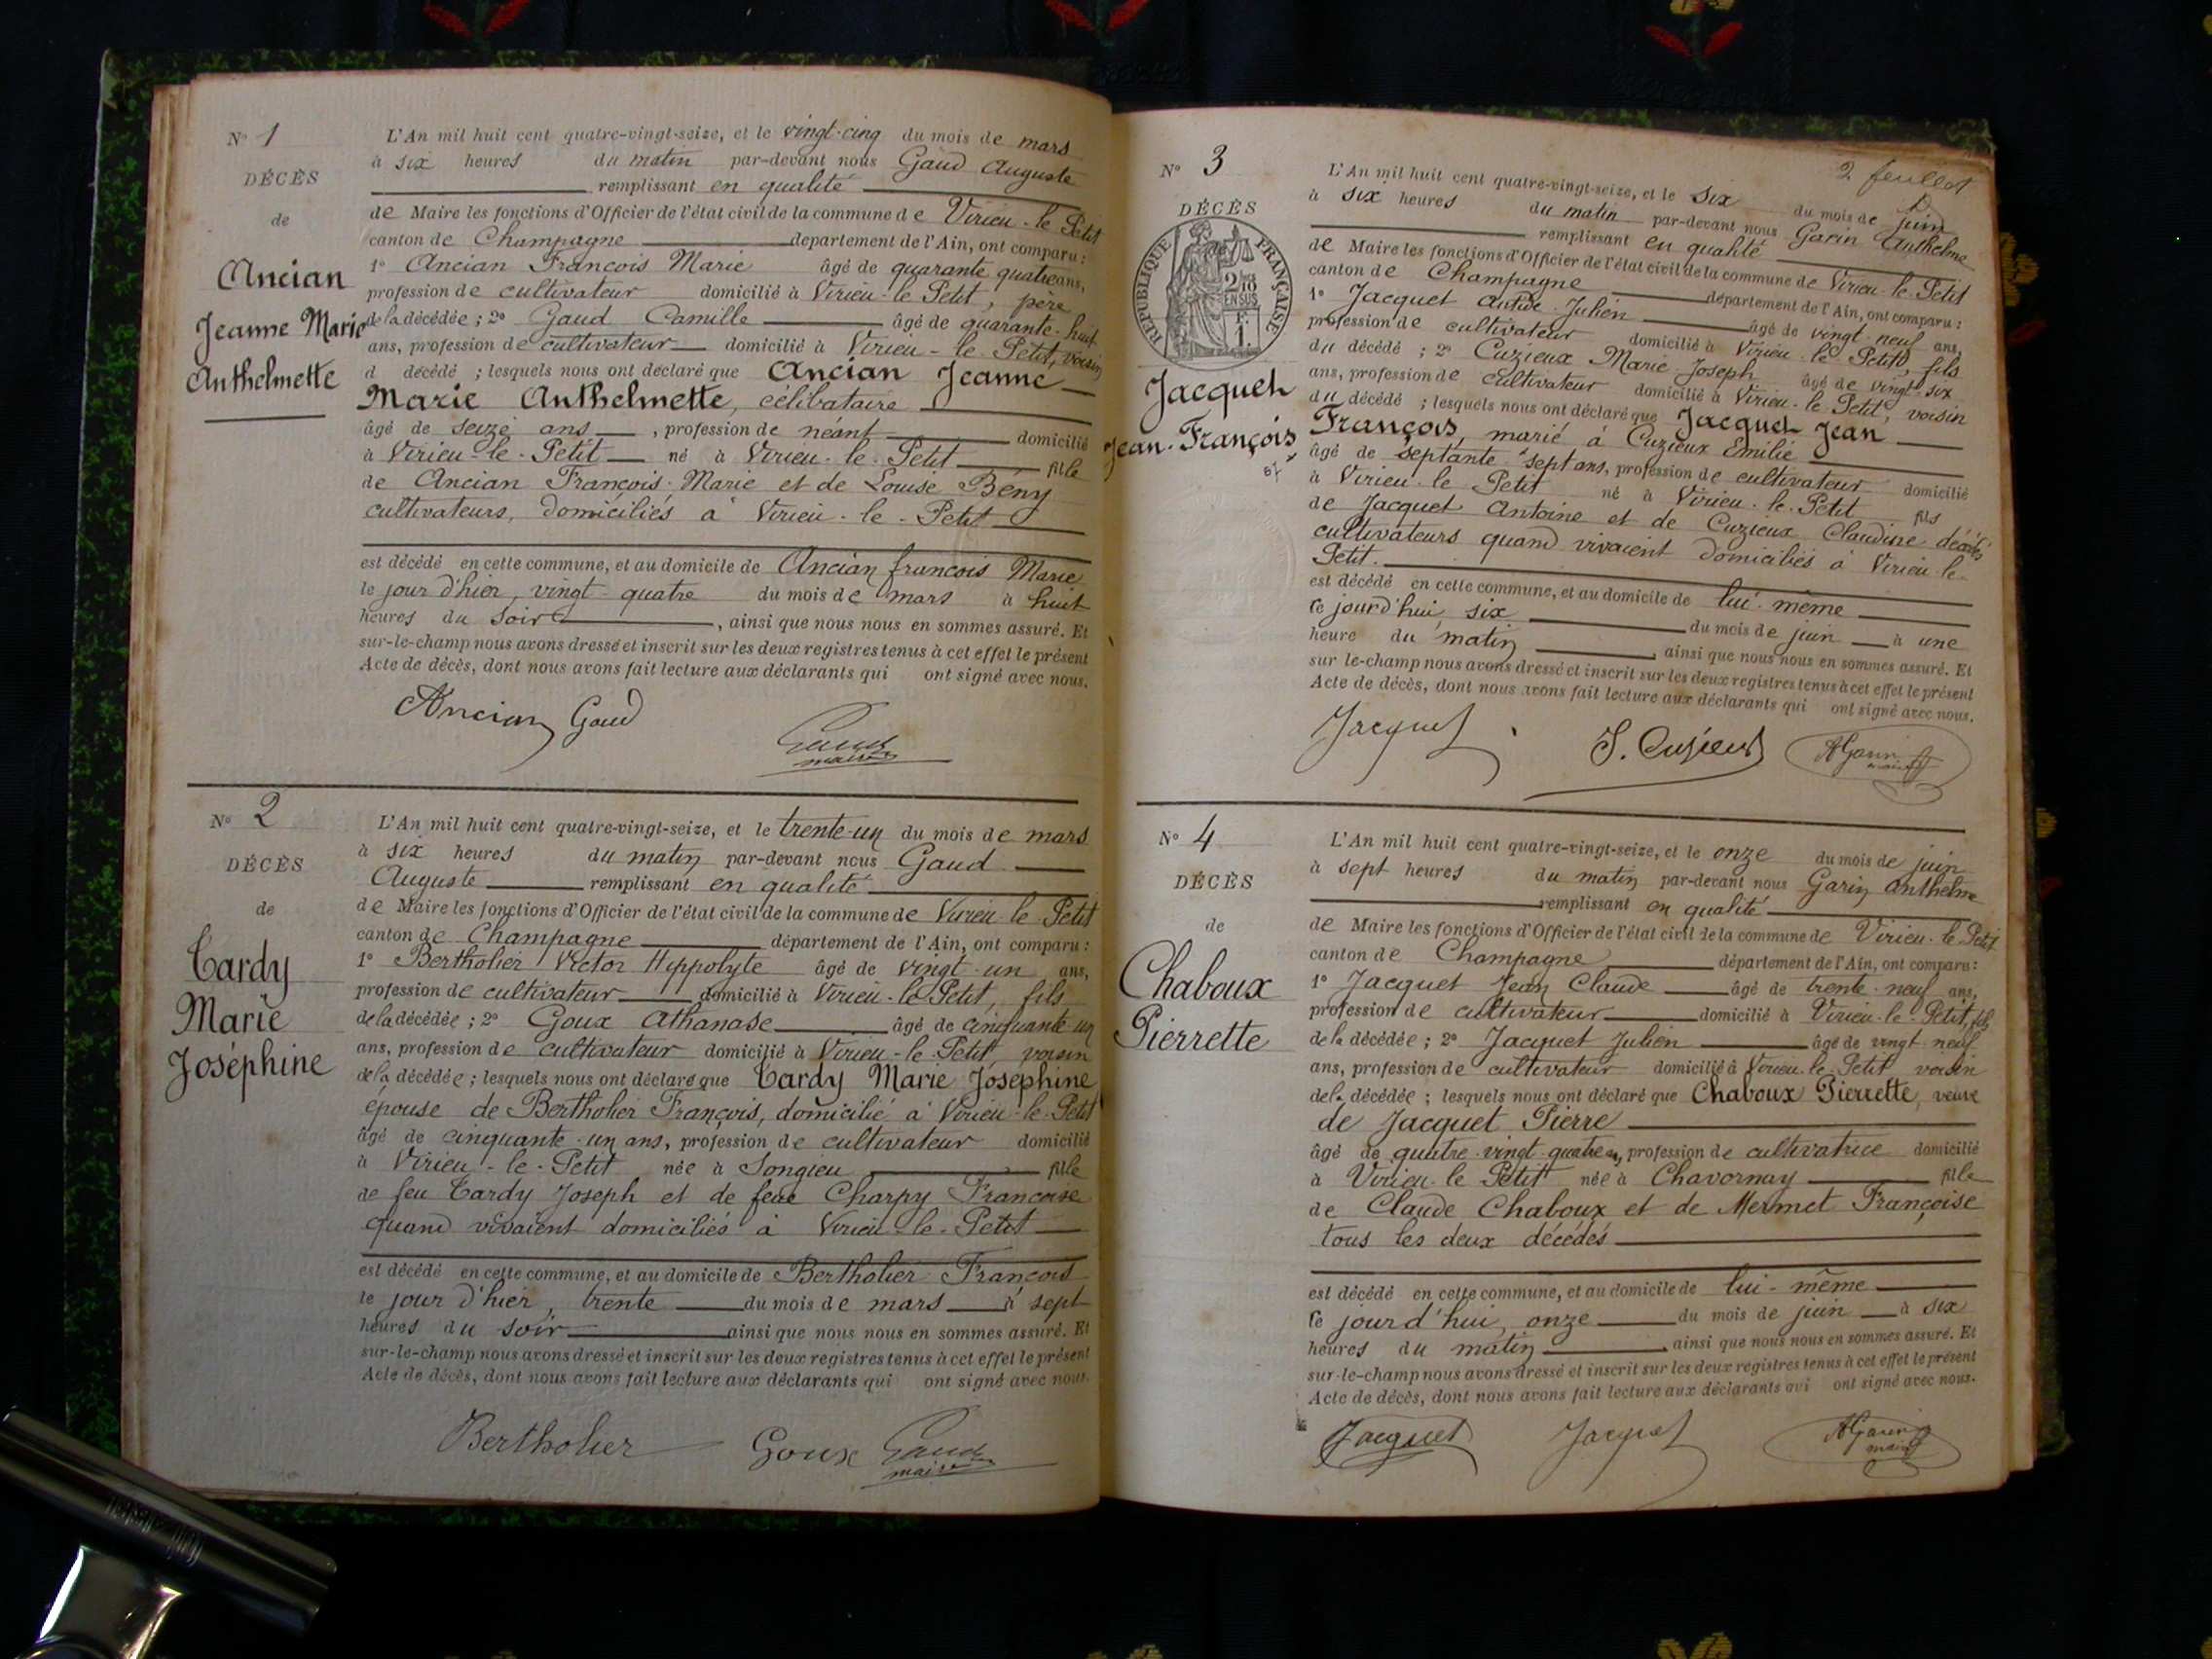 N° 1
DÉCÈS
de
Ancian
Jeanne Marie
Anthelmette
L'An mil huit cent quatre-vingt-seize, et le vingt-cinq du mois de mars
à six heures du matin par-devant nous Gaud Auguste
remplissant en qualité
de Maire les fonctions d'Officier de l'état civil de la commune de Virieu-le-Petit
canton de Champagne département de l'Ain, ont comparu :
1° Ancian François Marie âgé de quarante quatre ans,
profession de cultivateur domicilié à Virieu-le Petit, père
de la décédée ; 2° Gaud Camille âgé de quarante-huit
ans, profession de cultivateur domicilié à Virieu-le Petit, voisin
d décédé ; lesquels nous ont déclaré que Ancian Jeanne
Marie Anthelmette, célibataire
âgé de seize ans, profession de néant domicilié
à Virieu-le-Petit né à Virieu-le-Petit fille
de Ancian François-Marie et de Louise Bény
cultivateurs, domiciliés à Virieu-le-Petit
est décédé en cette commune, et au domicile de Ancian francois Marie
le jour d'hier, vingt-quatre du mois de mars à huit
heures du soir, ainsi que nous nous en sommes assuré. Et
sur-le-champ nous avons dressé et inscrit sur les deux registres tenus à cet effet le présent
Acte de décès, dont nous avons fait lecture aux déclarants qui ont signé avec nous.
Ancian Gaud Gaud
maire
N° 2
DÉCÈS
de
Tardy
Marie
Joséphine
L'An mil huit cent quatre-vingt-seize, et le trente-un du mois de mars
à six heures du matin par-devant nous Gaud
Auguste remplissant en qualité
de Maire les fonctions d'Officier de l'état civil de la commune de Virieu-le-Petit
canton de Champagne département de l'Ain, ont comparu :
1° Bertholier Victor Hippolyte âgé de vingt-un ans,
profession de cultivateur domicilié à Virieu-le Petit, fils
de la décédée ; 2° Goux Athanase âgé de cinquante-un
ans, profession de cultivateur domicilié à Virieu-le-Petit, voisin
de la décédée ; lesquels nous ont déclaré que Tardy Marie Joséphine
épouse de Bertholier François, domicilié à Virieu-le-Petit
âgé de cinquante-un ans, profession de cultivateur domicilié
à Virieu-le-Petit née à Songieu fille
de feu Tardy Joseph et de feue Charpy Francoise
quand vivaient domiciliés à Virieu-le-Petit
est décédé en cette commune, et au domicile de Bertholier François
le jour d'hier, trente du mois de mars à sept
heures du soir ainsi que nous nous en sommes assuré. Et
sur-le-champ nous avons dressé et inscrit sur les deux registres tenus à cet effet le présent
Acte de décès, dont nous avons fait lecture aux déclarants qui ont signé avec nous.
Bertholier Goux Gaud
maire
2 feuillet
N° 3
DÉCÈS
RÉPUBLIQUE FRANÇAISE
2/10 EN SUS
F.
1.
Jacquet
Jean-François
L'An mil huit cent quatre-vingt-seize, et le six du mois de juin
à six heures du matin par-devant nous Garin Anthelme
remplissant en qualité
de Maire les fonctions d'Officier de l'état civil de la commune de Virieu-le-Petit
canton de Champagne département de l'Ain, ont comparu :
1° Jacquet Julien âgé de vingt neuf ans,
profession de cultivateur domicilié à Virieu-le Petit, fils
du décédé ; 2° Cuzieux Marie Joseph âgé de vingt-six
ans, profession de cultivateur domicilié à Virieu-le-Petit, voisin
du décédé ; lesquels nous ont déclaré que Jacquet Jean
François, marié à Cuzieux Emilie
âgé de septante sept ans, profession de cultivateur domicilié
à Virieu-le Petit né à Virieu-le-Petit fils
de Jacquet Antoine et de Cuzieux Claudine décédés
cultivateurs quand vivaient domiciliés à Virieu-le-
Petit.
est décédé en cette commune, et au domicile de lui-même
le jourd'hui, six du mois de juin à une
heure du matin ainsi que nous nous en sommes assuré. Et
sur le-champ nous avons dressé et inscrit sur les deux registres tenus à cet effet le présent
Acte de décès, dont nous avons fait lecture aux déclarants qui ont signé avec nous.
Jacquet J. Cuzieux AGarin
maire
N° 4
DÉCÈS
de
Chaboux
Pierrette
L'An mil huit cent quatre-vingt-seize, et le onze du mois de juin
à sept heures du matin par-devant nous Garin Anthelme
remplissant en qualité
de Maire les fonctions d'Officier de l'état civil de la commune de Virieu-le Petit
canton de Champagne département de l'Ain, ont comparu :
1° Jacquet Jean Claude âgé de trente-neuf ans,
profession de cultivateur domicilié à Virieu-le-Petit, fils
de la décédée ; 2° Jacquet Julien âgé de vingt neuf
ans, profession de cultivateur domicilié à Virieu-le-Petit voisin
de la décédée ; lesquels nous ont déclaré que Chaboux Pierrette, veuve
de Jacquet Pierre
âgé de quatre-vingt-quatre an, profession de cultivatrice domicilié
à Virieu-le Petit née à Chavornay fille
de Claude Chaboux et de Mermet Françoise
tous les deux décédés
est décédé en cette commune, et au domicile de lui-même
le jourd'hui, onze du mois de juin à six
heures du matin ainsi que nous nous en sommes assuré. Et
sur-le-champ nous avons dressé et inscrit sur les deux registres tenus à cet effet le présent
Acte de décès, dont nous avons fait lecture aux déclarants qui ont signé avec nous.
Jacquet Jacquet AGarin
maire